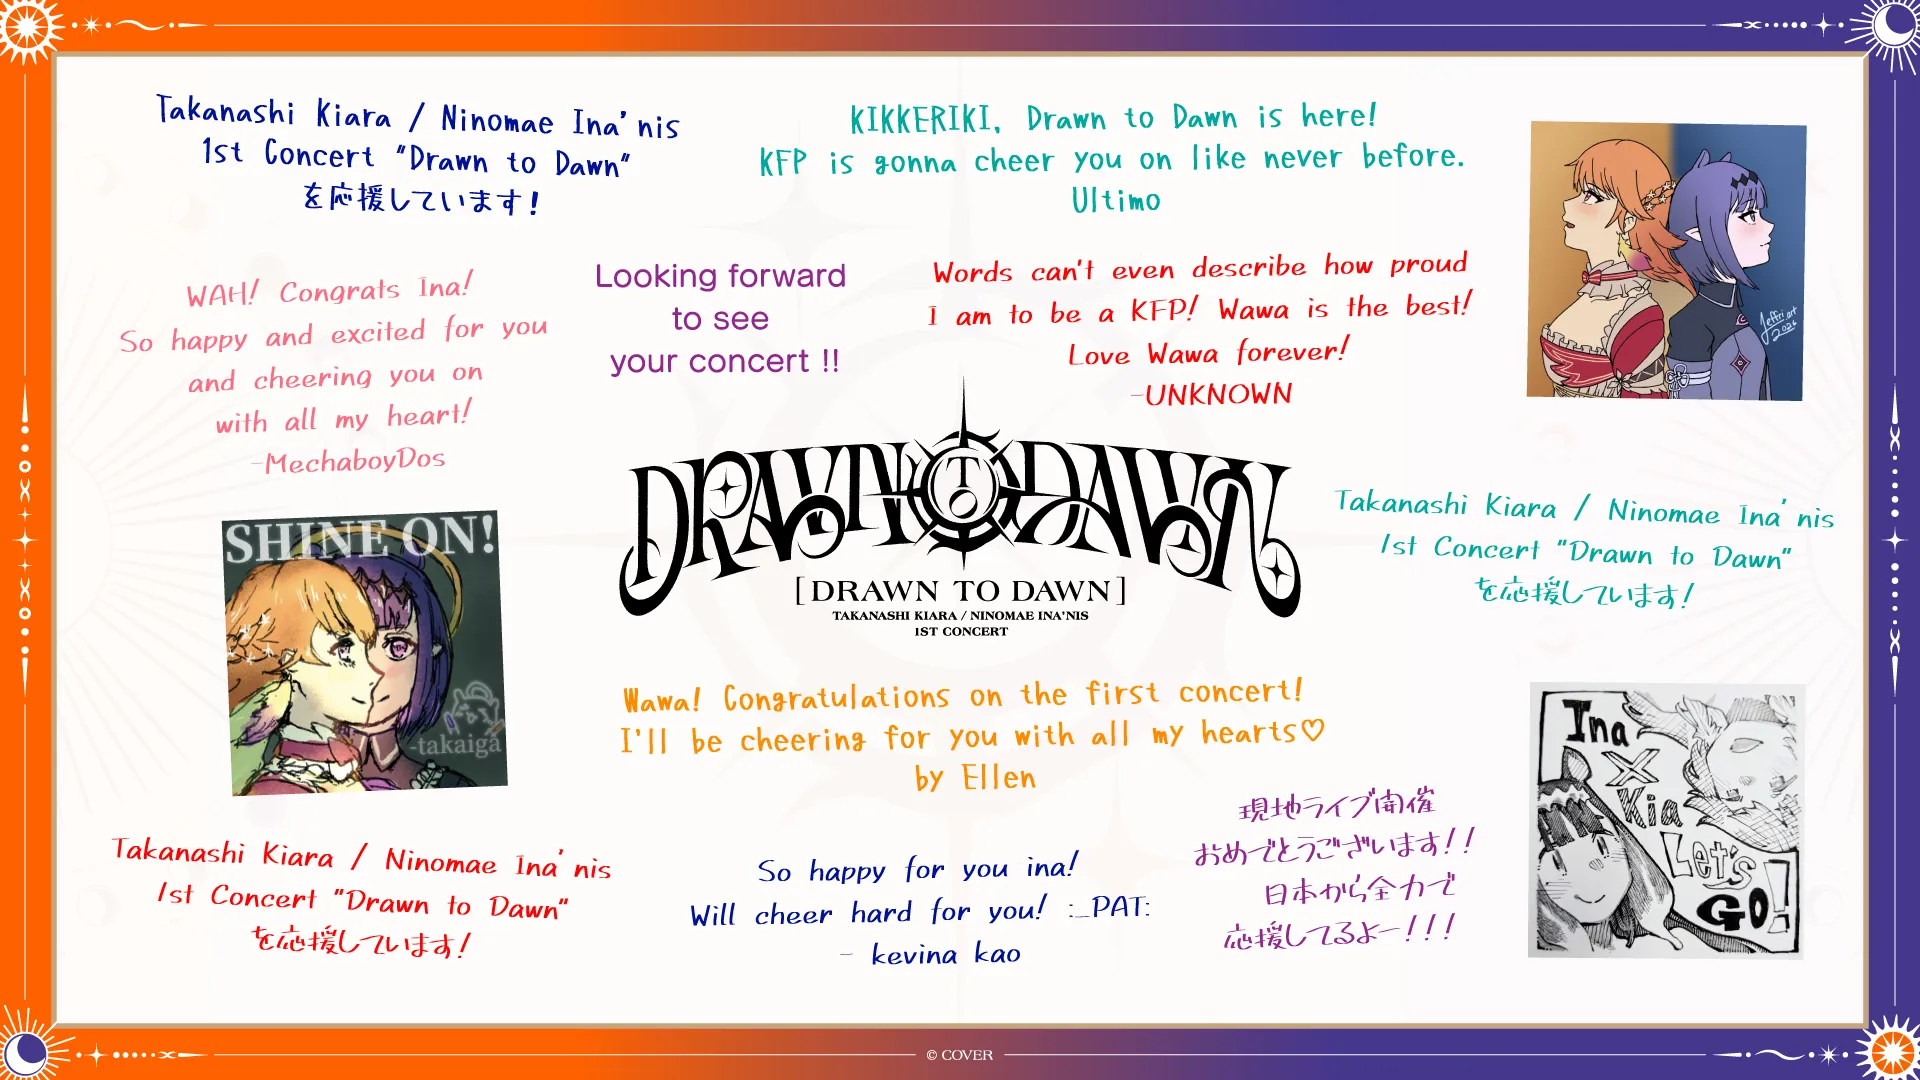 Takanashi Kiara / Ninomae Ina'nis
1st Concert "Drawn to Dawn"
を応援しています!
KIKKERIKI, Drawn to Dawn is here!
KFP is gonna cheer you on like never before.
Ultimo
WAH! Congrats Ina!
So happy and excited for you
and cheering you on
with all my heart!
-MechaboyDos
Looking forward
to see
your concert !!
Words can't even describe how proud
I am to be a KFP! Wawa is the best!
Love Wawa forever!
-UNKNOWN
Jeffri.art
2026
SHINE ON!
-takaiga
DRAWN TO DAWN
[DRAWN TO DAWN]
TAKANASHI KIARA / NINOMAE INA'NIS
1ST CONCERT
Takanashi Kiara / Ninomae Ina'nis
1st Concert "Drawn to Dawn"
を応援しています!
Wawa! Congratulations on the first concert!
I'll be cheering for you with all my hearts♡
by Ellen
Ina
X
Kia
Let's
GO!
Takanashi Kiara / Ninomae Ina'nis
1st Concert "Drawn to Dawn"
を応援しています!
So happy for you ina!
Will cheer hard for you! :_PAT:
- kevina kao
現地ライブ開催
おめでとうございます!!
日本から全力で
応援してるよー!!!
© COVER